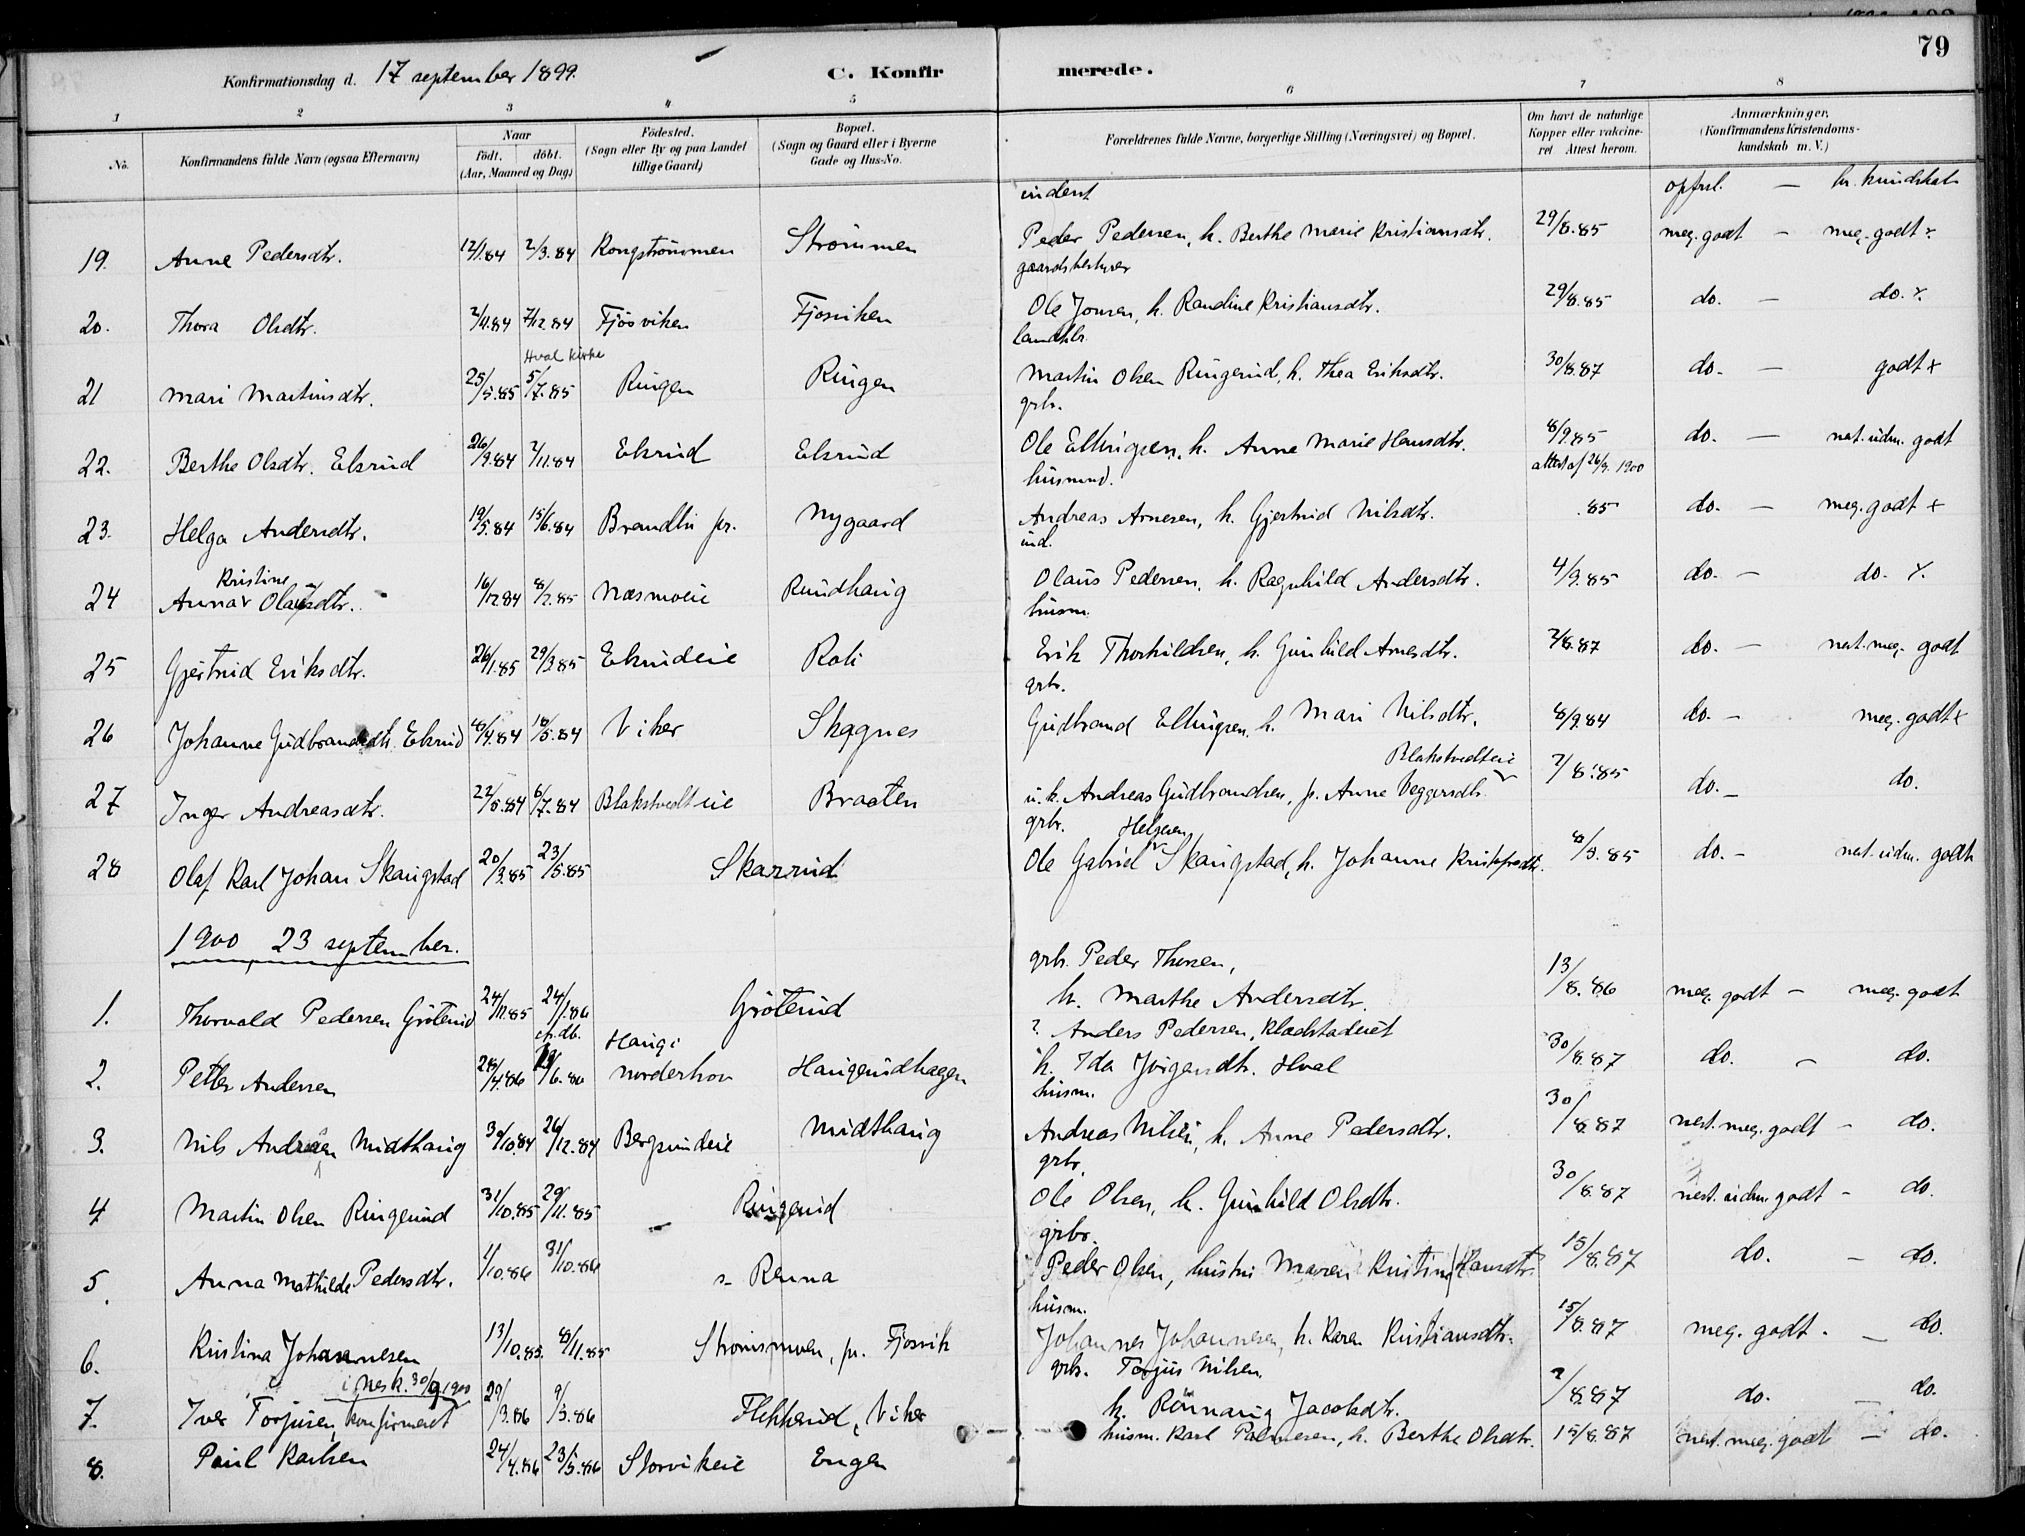 79
Konfirmationsdag d. 17 september 1899. C. Konfirmerede.
1 2 3 4 5 6 7 8
No. Konfirmandens fulde Navn (ogsaa Efternavn) Naar födt. döbt. (Aar, Maaned og Dag) Födested. (Sogn eller By og paa Landet tillige Gaard) Bopæl. (Sogn og Gaard eller i Byerne Gade og Hus-No. Forældrenes fulde Navne, borgerlige Stilling (Næringsvei) og Bopæl. Om havt de naturlige Kopper eller vakcineret Attest herom. Anmærkninger. (Konfirmandens Kristendomskundskab m. V.)
inderst opførsl. — kr. kundskab
19. Anne Pedersdtr. 12/1.84 2/3.84 Kongstrømmen Strømmen Peder Pedersen, h. Berthe Marie Kristiansdtr. 29/8.85 meg. godt — meg. godt
gaardsbestyrer
20. Thora Olsdtr. 2/11.84 7/12.84 Fjøsviken Fjøsviken Ole Jonsen, h. Randine Kristiansdtr. 29/8.85 do. — do.
Hval kirke landhlr.
21 Mari Martinsdtr. 25/5.85 5/7.85 Ringen Ringen Martin Olsen Ringerud, h. Thea Eriksdtr. 30/8.87 do. — godt
grbr.
22. Berthe Olsdtr. Elsrud 26/9.84 2/11.84 Elsrud Elsrud Ole Ellingsen, h. Anne Marie Hansdtr. 8/9.85 do. — nest. udm. godt
husmd. attest af 26/9. 1900
23. Helga Andersdtr. 19/5.84 15/6.84 Brandli pr. Nygaard Andreas Arnesen, h. Gjertrud Nilsdtr. .85 do. — meg. godt
ind.
Kristine
24 Anna Olausdtr. 16/12.84 8/2.85 Næsmoeie Rundhaug Olaus Pedersen, h. Ragnhild Andersdtr. 4/9.85 do. — do.
husm.
25 Gjertrud Eriksdtr. 26/1.85 29/3.85 Elsrudeie Roli Erik Thorkildsen, h. Gunhild Arnesdtr. 2/8.87 do. — nest. meg. godt
grbr.
26 Johanne Gudbrandsdtr. Elsrud 8/4.84 18/5.84 Viker Skagnes Gudbrand Ellingsen, h. Mari Nilsdtr. 8/9.84 do. — meg. godt
Blakstvedteie
27 Inger Andreasdtr. 22/5.84 6/7.84 Blakstvedteie Braaten u. k. Andreas Gudbrandsen, p. Anne Veggersdtr. 2/8.85 do. — do.
grbr. Helgesen
28 Olaf Karl Johan Skaugstad 20/3.85 23/5.85 Skarrud Ole Gabriel Skaugstad, h. Johanne Kristofersdtr. 8/9.85 do. — nest. udm. godt
1900 23 september.
grbr. Peder Thorsen,
1. Thorvald Pedersen Grøterud 24/11.85 24/1.86 Grøterud h. Marthe Andersdtr. 13/8.86 meg. godt — meg. godt
Haug i ? Anders Pedersen, Kladstadeiet
2. Petter Andersen 28/4.86 Norderhov Haugerudhagen h. Ida Jørgensdtr. Hval 30/8.87 do. — do.
husm.
3. Nils Andreasen Midthaug 30/10.84 26/12.84 Bergsundeie Midthaug Andreas Nilsen, h. Anne Pedersdtr. 30/8.87 nest. meg. godt — do.
grbr.
4 Martin Olsen Ringerud 31/10.85 29/11.85 Ringerud Ole Olsen, h. Gunhild Olsdtr. 30/8.87 nest. udm. godt — do.
grbr.
5. Anna Mathilde Pedersdtr. 1/10.86 31/10.86 s. Renna Peder Olsen, hustru Maren Kristine Hansdtr. 15/8.87 do. — do.
husm.
6. Kristina Johannesen 13/10.85 8/11.85 Stromsmoen, pr. Fjosvik Johannes Johannesen, h. Karen Kristiansdtr. 15/8.87 meg. godt. — do.
i Nesk. 30/9 1900 grbr. Torjus Nilsen,
7. Iver Torjusen, konfirmeret 29/3.86 9/5.86 Flekkerud, Viker h. Rønnaug Jacobsdtr. 2/8.87 do. — do.
8. Paul Karlsen 24/4.86 23/5.86 Storvikeie Engen husm. Karl Palmesen, h. Berthe Olsdtr. 15/8.87 nest. meg. godt — do.